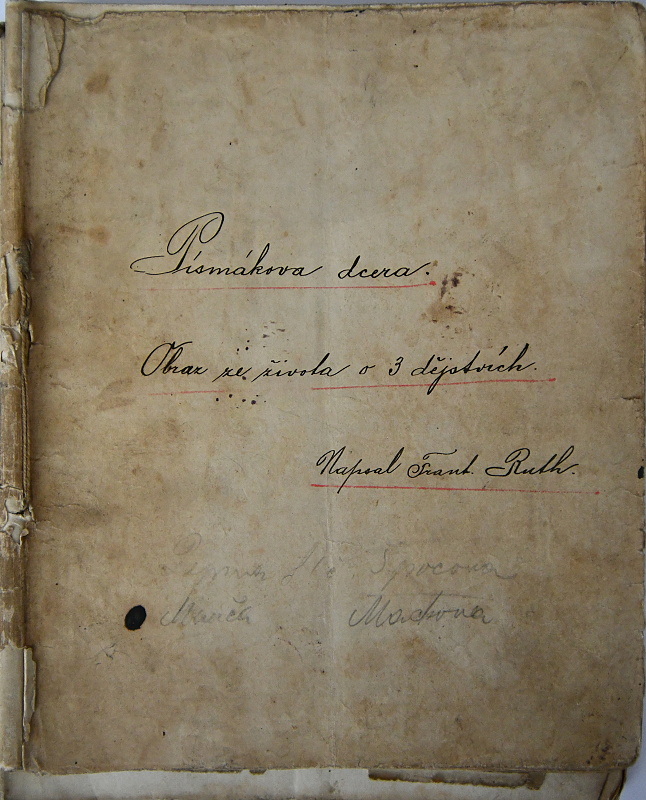 Písmákova dcera.
Obraz ze života o 3 dějstvích.
Napsal Frant. Ruth.
Machova